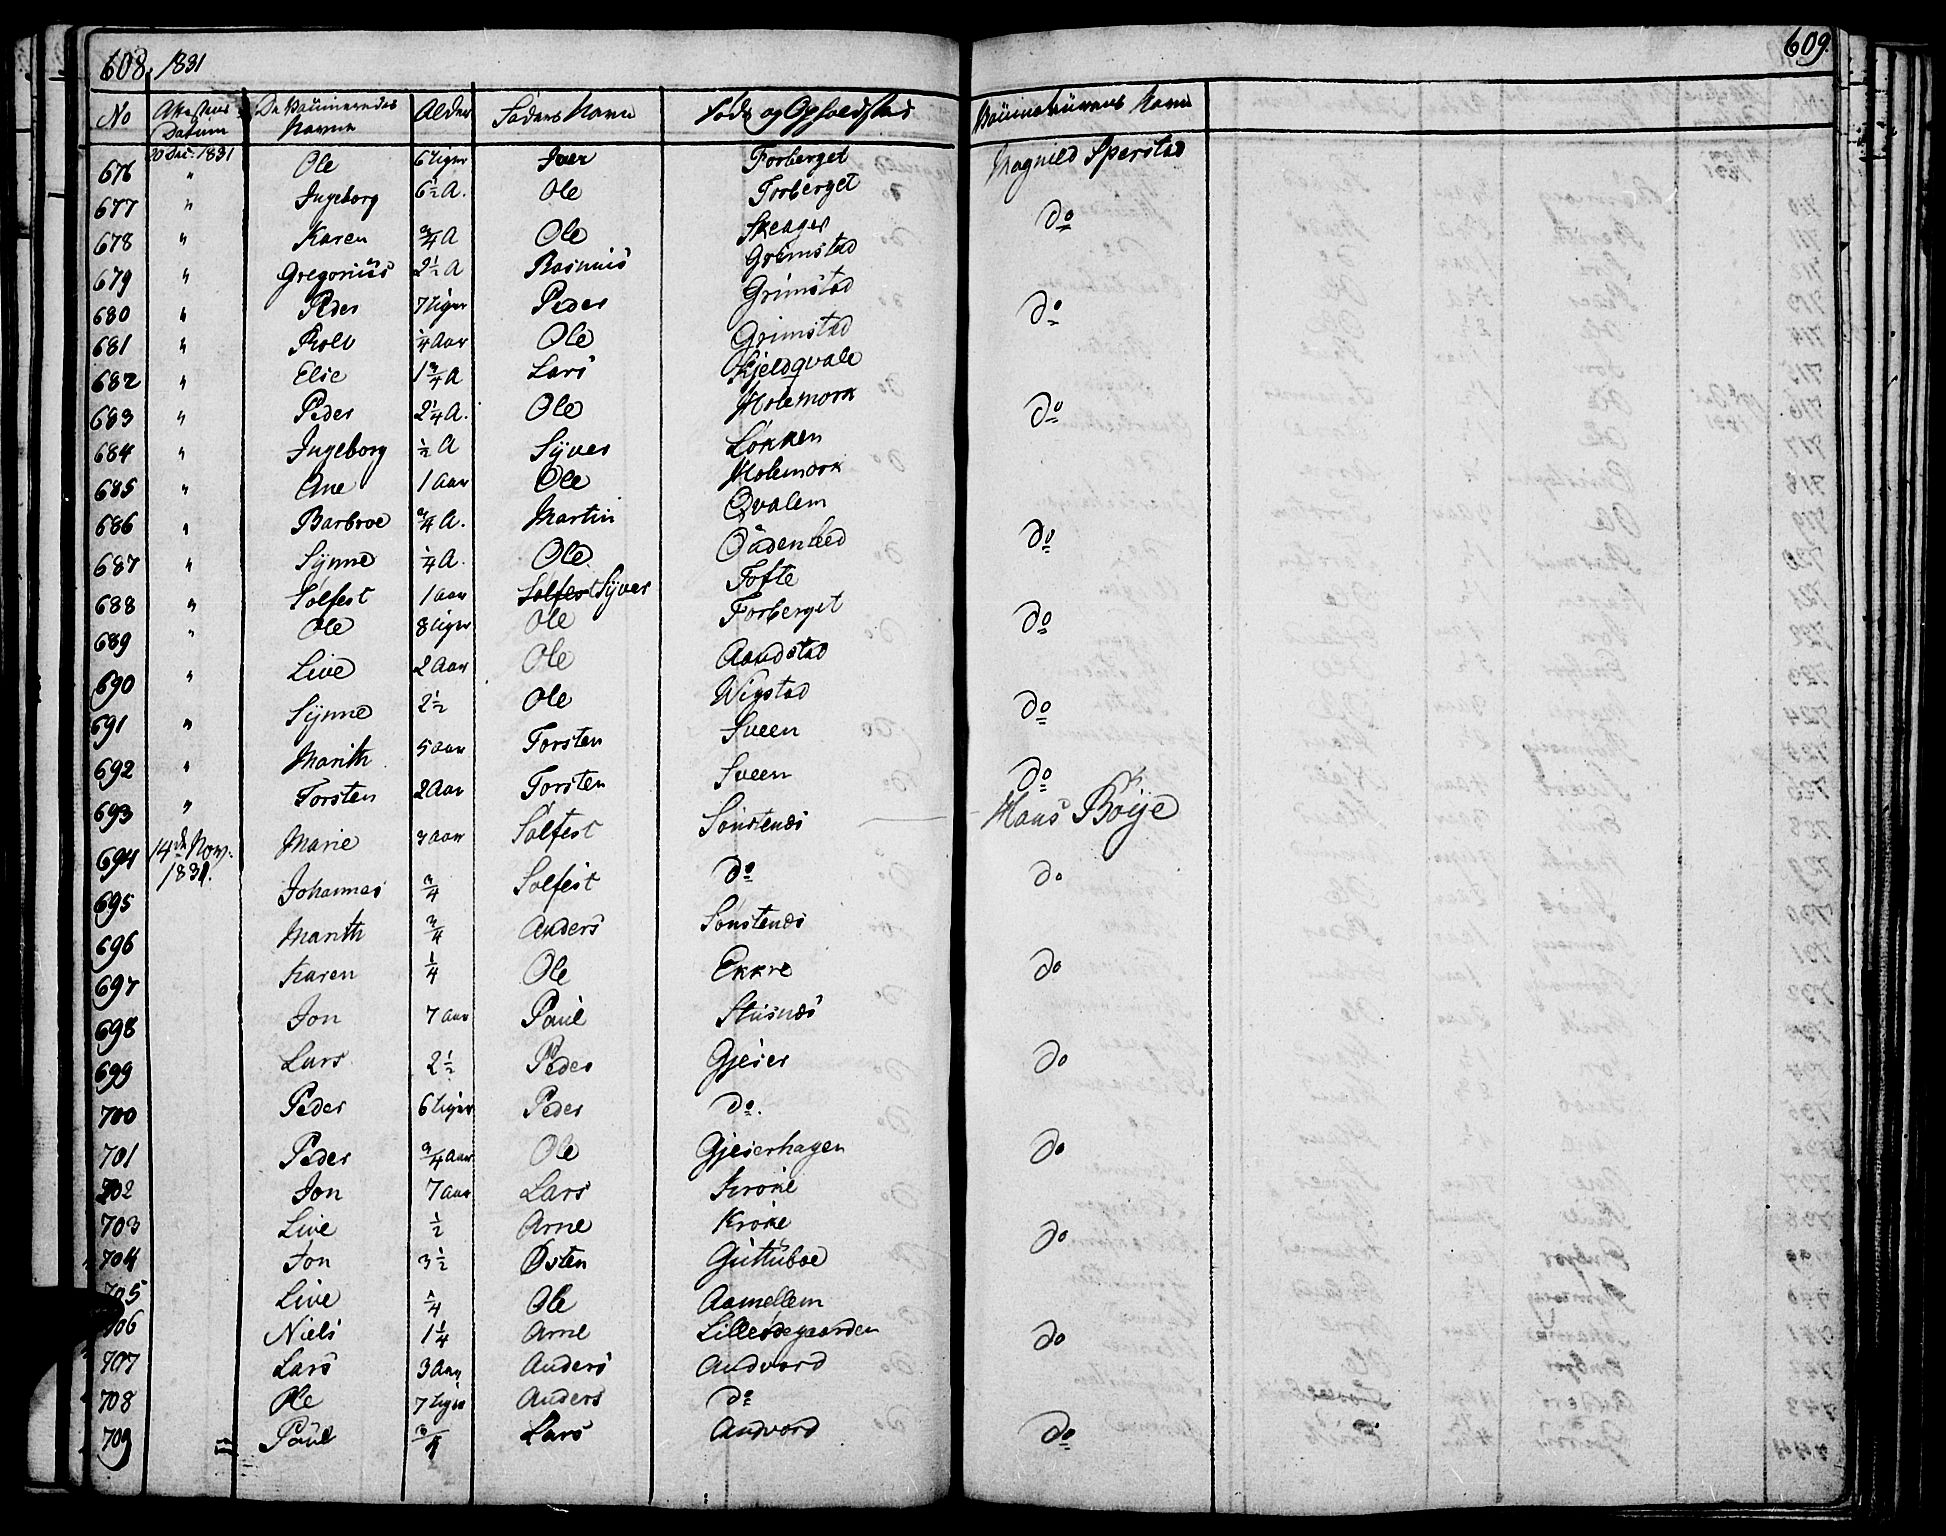 608. 1831
609.
No Attestens Datum De Vaccineredes Navne Alder Faders Navn Føde og Opholdsted Vaccinateurens Navn
676 20 Dec: 1831 Ole 6 Uger Iver Forberget Magnild Sperstad
677 " Ingeborg 6½ A. Ole Forberget
678 " Karen ¾ A Ole Skeager do
679 " Gregorius 2½ A Rasmus Grimstad
680 " Peder 7 Uger Peder Grimstad do
681 " Rolv ¼ Aar Ole Grimstad
682 " Elie 1¾ A Lars Kjeldqvale
683 " Peder 2¼ A. Ole Holemork do
684 " Ingeborg ½ A Syver Løkken
685 " Ane 1 Aar Ole Holemork
686 " Barbroe ¾ A. Martin Qvalem do
687 " Synne ¼ A. Ole Odenlied
688 " Solfest 1 aar Solfest Syver Tofte
689 " Ole 8 Uger Ole Forberget do
690 " Live 2 Aar Ole Aandstad
691 " Synne 2½ Ole Wigstad do
692 " Marith 5 Aar Torsten Sveen
693 " Torsten 2 Aar Torsten Sveen do
694 14de Nov: 1831. Marie 3 aar Solfest Sønstenes Hans Böye
695 Johannes ¾ Solfest do do
696 Marith ¾ Anders Sønstenes
697 Karen ¼ Ole Ekkre do
698 Jon 7 aar Paul Stusnæs
699 Lars 2½ Peder Gjeier do
700 Peder 6 Uger Peder do.
701 Peder ¾ Aar Ole Gjeierhagen do
702 Jon 7 Aar Lars Krøke
703 Live ½ Arne Krøke do
704 Jon 3½ Østen Guttuboe
705 Live ¼ Ole Aamellem
706 Niels 1¼ Arne Lilleødegaarden do
707 Lars 3 Aar Anders Andvord
708 Ole 7 Uger Anders do
709 " Paul ¾ Lars Andvord do